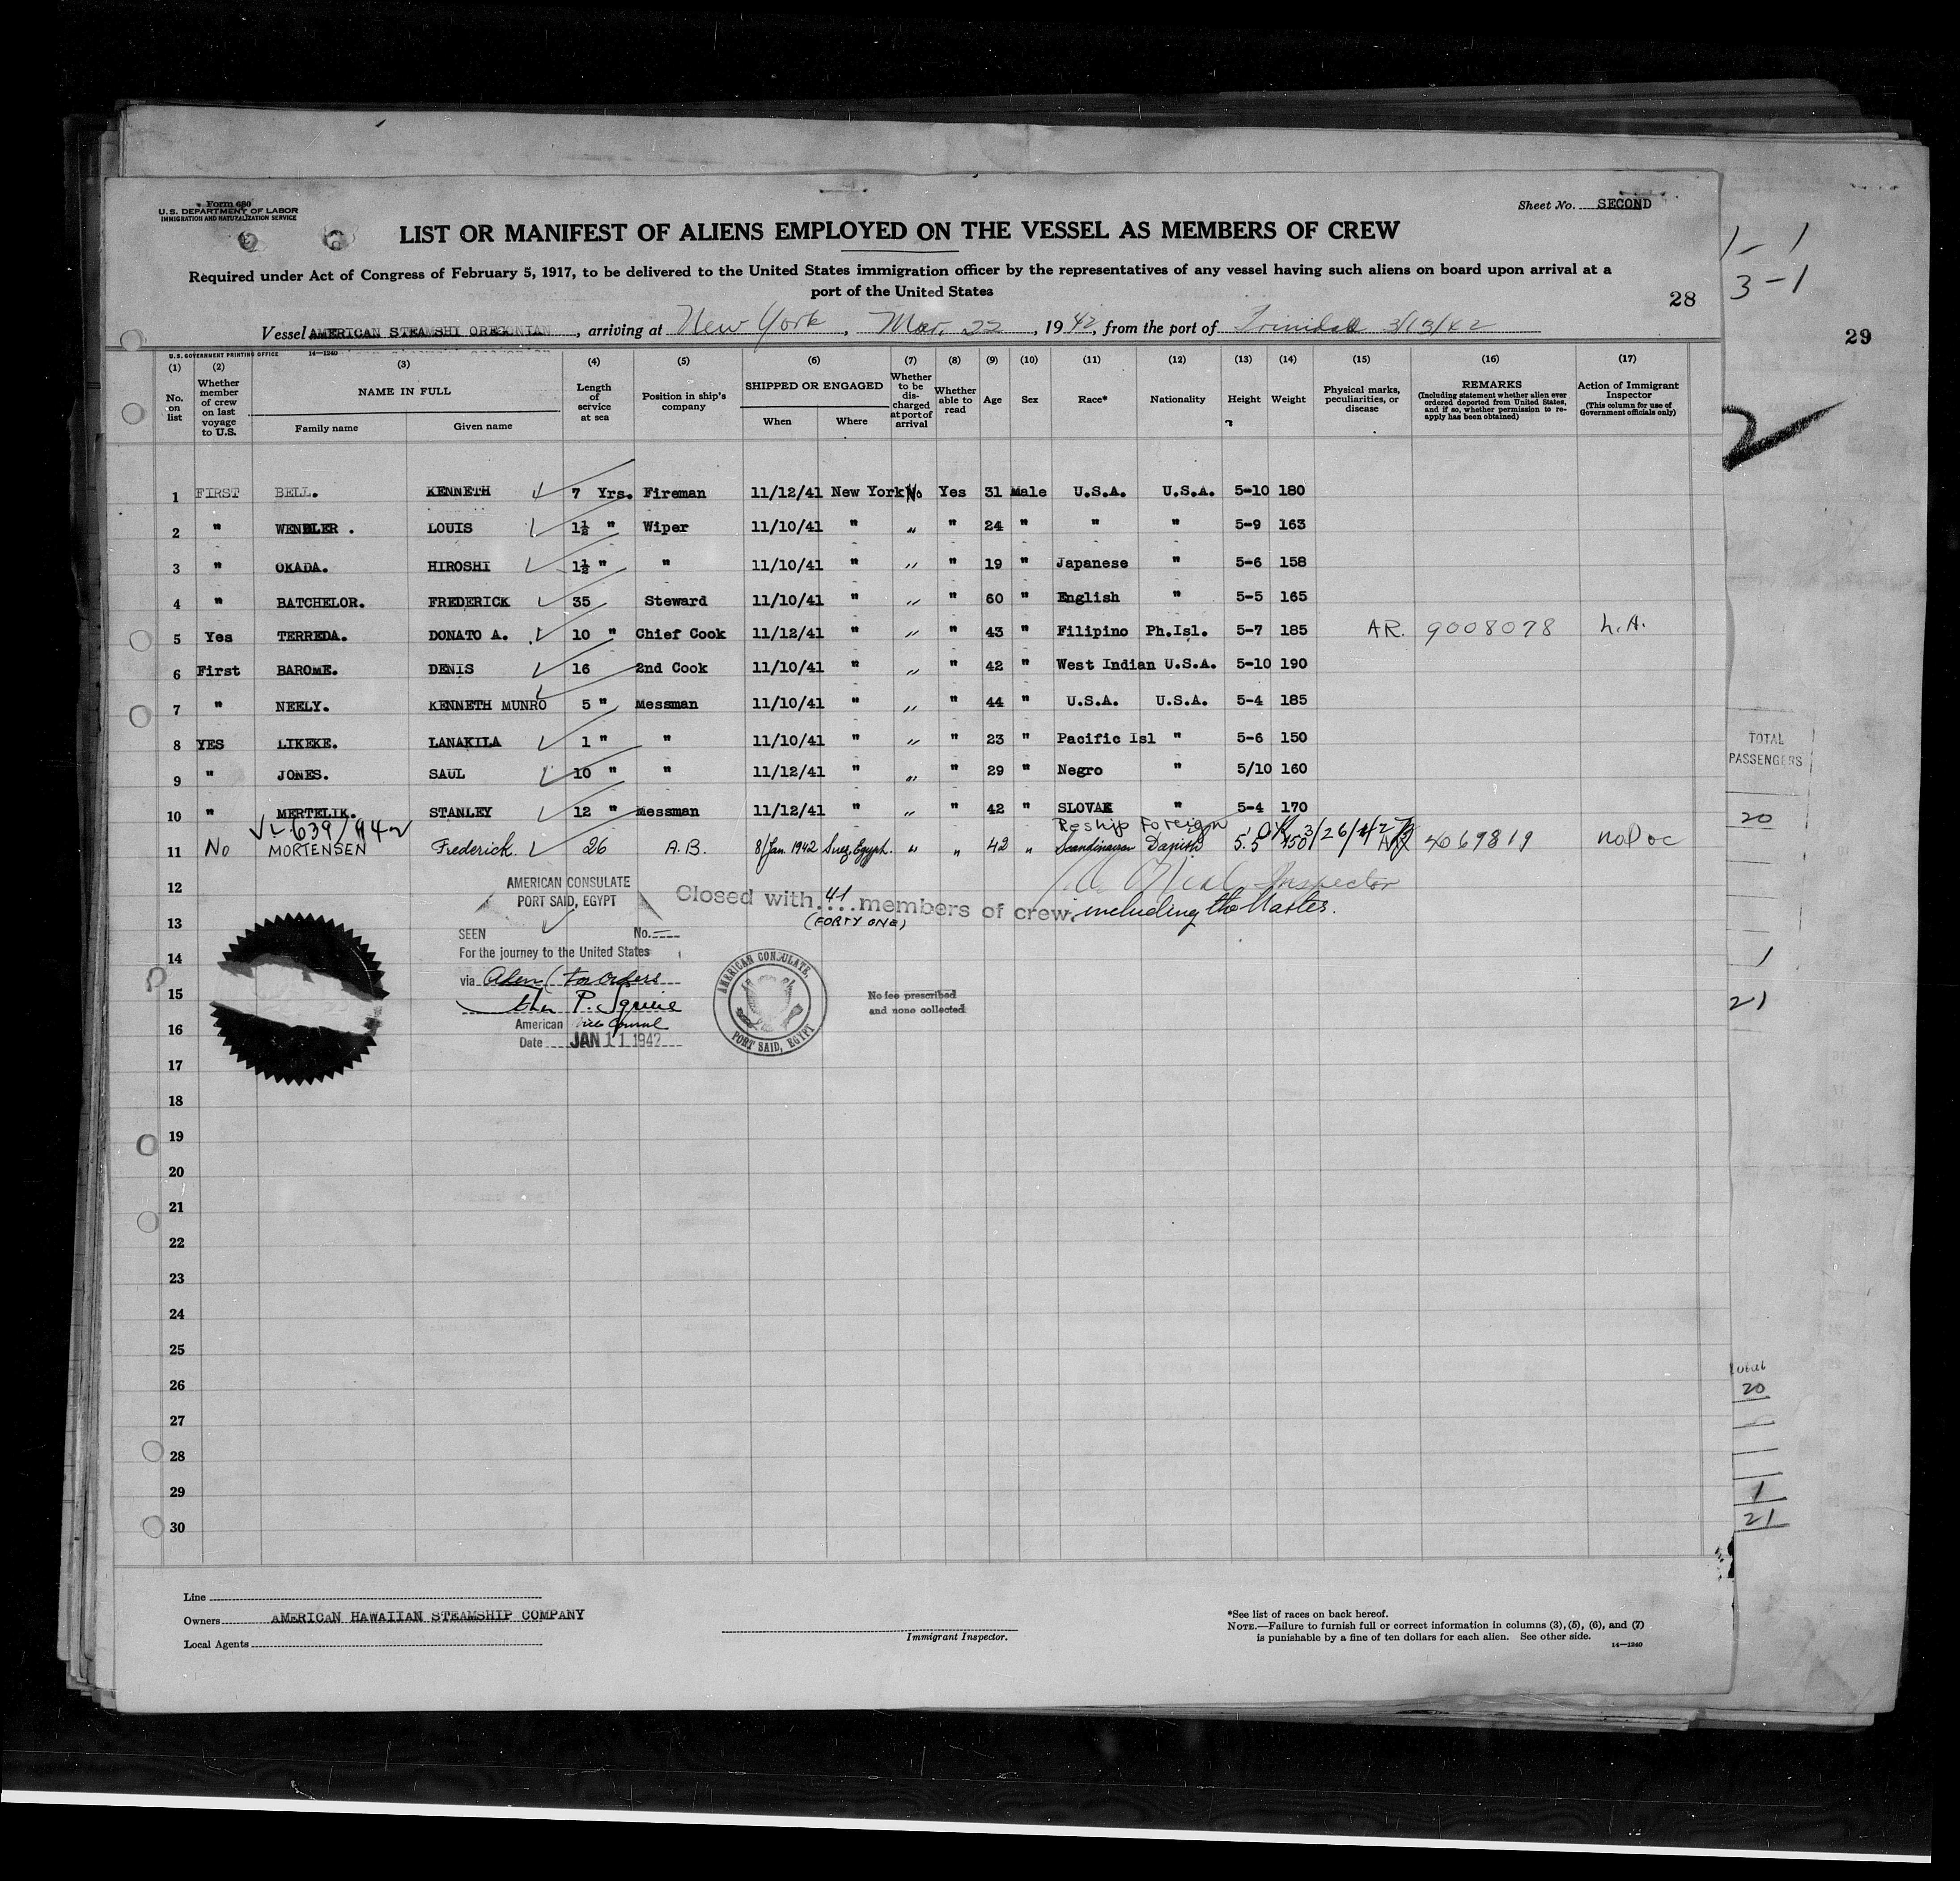 Form 680
U.S. DEPARTMENT OF LABOR
IMMIGRATION AND NATURALIZATION SERVICE
Sheet No. SECOND
LIST OR MANIFEST OF ALIENS EMPLOYED ON THE VESSEL AS MEMBERS OF CREW
Required under Act of Congress of February 5, 1917, to be delivered to the United States immigration officer by the representatives of any vessel having such aliens on board upon arrival at a
port of the United States
28
29
1- 1
3-1
2
Vessel AMERICAN STEAMSHI OREGONIAN, arriving at New York, Mar. 22, 1942, from the port of Trinidad 3/13/42
U.S. GOVERNMENT PRINTING OFFICE 14—1240
(1) (2) (3) (4) (5) (6) (7) (8) (9) (10) (11) (12) (13) (14) (15) (16) (17)
No. on list
Whether member of crew on last voyage to U.S.
NAME IN FULL
Family name Given name
Length of service at sea
Position in ship's company
SHIPPED OR ENGAGED
When Where
Whether to be discharged at port of arrival
Whether able to read
Age
Sex
Race*
Nationality
Height
Weight
Physical marks, peculiarities, or disease
REMARKS
(Including statement whether alien ever ordered deported from United States, and if so, whether permission to re-apply has been obtained)
Action of Immigrant Inspector
(This column for use of Government officials only)
1 FIRST BELL. KENNETH 7 Yrs. Fireman 11/12/41 New York No Yes 31 Male U.S.A. U.S.A. 5-10 180
2 " WENDLER . LOUIS 1½ " Wiper 11/10/41 " " " 24 " " " 5-9 163
3 " OKADA. HIROSHI 1½ " " 11/10/41 " " " 19 " Japanese " 5-6 158
4 " BATCHELOR. FREDERICK 35 Steward 11/10/41 " " " 60 " English " 5-5 165
5 Yes TERREDA. DONATO A. 10 " Chief Cook 11/12/41 " " " 43 " Filipino Ph.Isl. 5-7 185 AR. 9008078 L.A.
6 First BAROME. DENIS 16 2nd Cook 11/10/41 " " " 42 " West Indian U.S.A. 5-10 190
7 " NEELY. KENNETH MUNRO 5 " Messman 11/10/41 " " " 44 " U.S.A. U.S.A. 5-4 185
8 YES LIKEKE. LANAKILA 1 " " 11/10/41 " " " 23 " Pacific Isl " 5-6 150
9 " JONES. SAUL 10 " " 11/12/41 " " " 29 " Negro " 5/10 160
10 " MERTELIK. STANLEY 12 " Messman 11/12/41 " " " 42 " SLOVAK " 5-4 170
Reship Foreign OK 3/26/42
11 No MORTENSEN Frederick. 26 A.B. 8/Jan. 1942 Suez, Egypt. " " 42 " Scandinavian Danish 5.5 150 AR 4069819 no Doc
12
13
14
15
16
17
18
19
20
21
22
23
24
25
26
27
28
29
30
Inspector
Closed with 41 members of crew, including the Master.
(FORTY ONE)
AMERICAN CONSULATE
PORT SAID, EGYPT
SEEN No. —
For the journey to the United States
via Aden (for orders
American Vice Consul
Date JAN 11 1942
AMERICAN CONSULATE,
PORT SAID, EGYPT
No fee prescribed
and none collected
TOTAL
PASSENGERS
20
1
21
total
20
1
21
Line
Owners AMERICAN HAWAIIAN STEAMSHIP COMPANY
Local Agents
Immigrant Inspector.
*See list of races on back hereof.
NOTE.—Failure to furnish full or correct information in columns (3), (5), (6), and (7)
is punishable by a fine of ten dollars for each alien. See other side.
14—1240